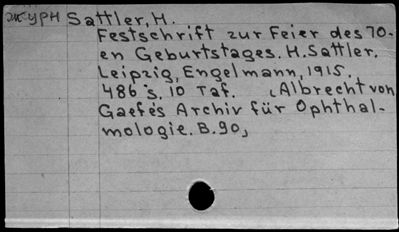 Sattler, H.
Festschrift zur Feier des 70-
en Geburtstages. H. Sattler.
Leipzig, Engelmann, 1915.
486 s. 10 Taf. (Albrecht von
Gaefes Archiv für Ophthal-
mologie. B. 90,